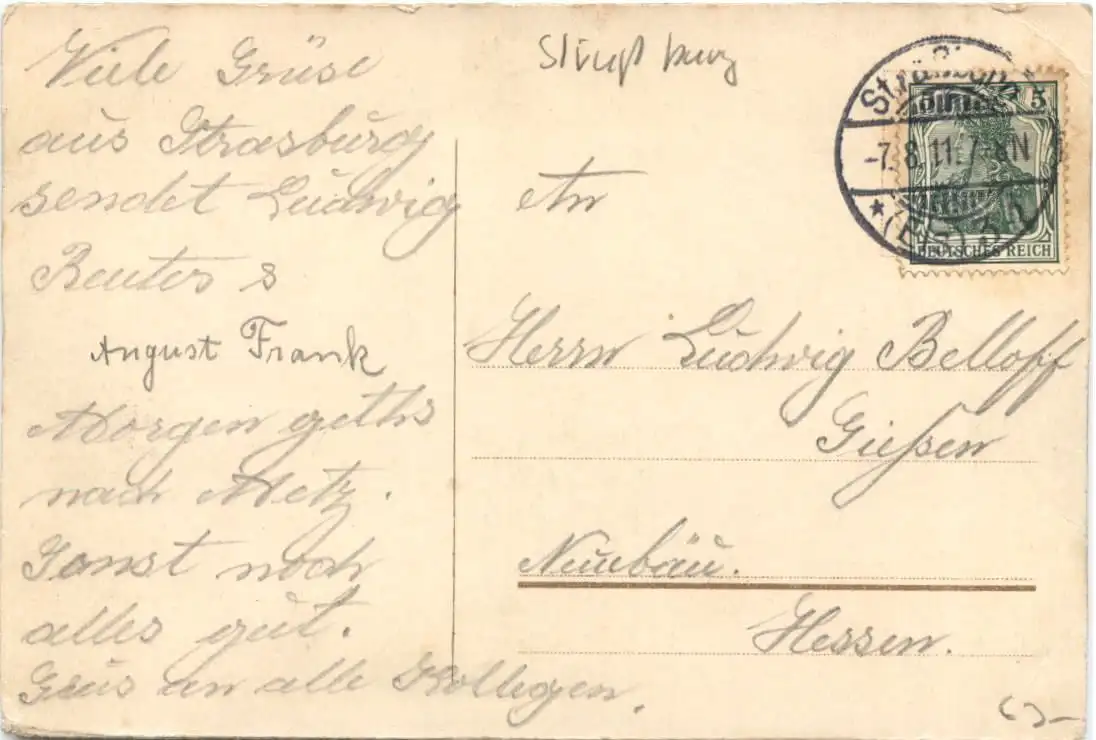 Viele Grüse
aus Strasburg
sendet Ludwig
Reuter &
August Frank
Morgen geths
nach Metz.
Sonst noch
alles gut.
Grus an alle Kollegen.
Straßburg
-7.8.11. 7-8N
* (Els) 3
5
DEUTSCHES REICH
An
Herrn Ludwig Belloff
Gießen
Neuebäue.
Hessen.